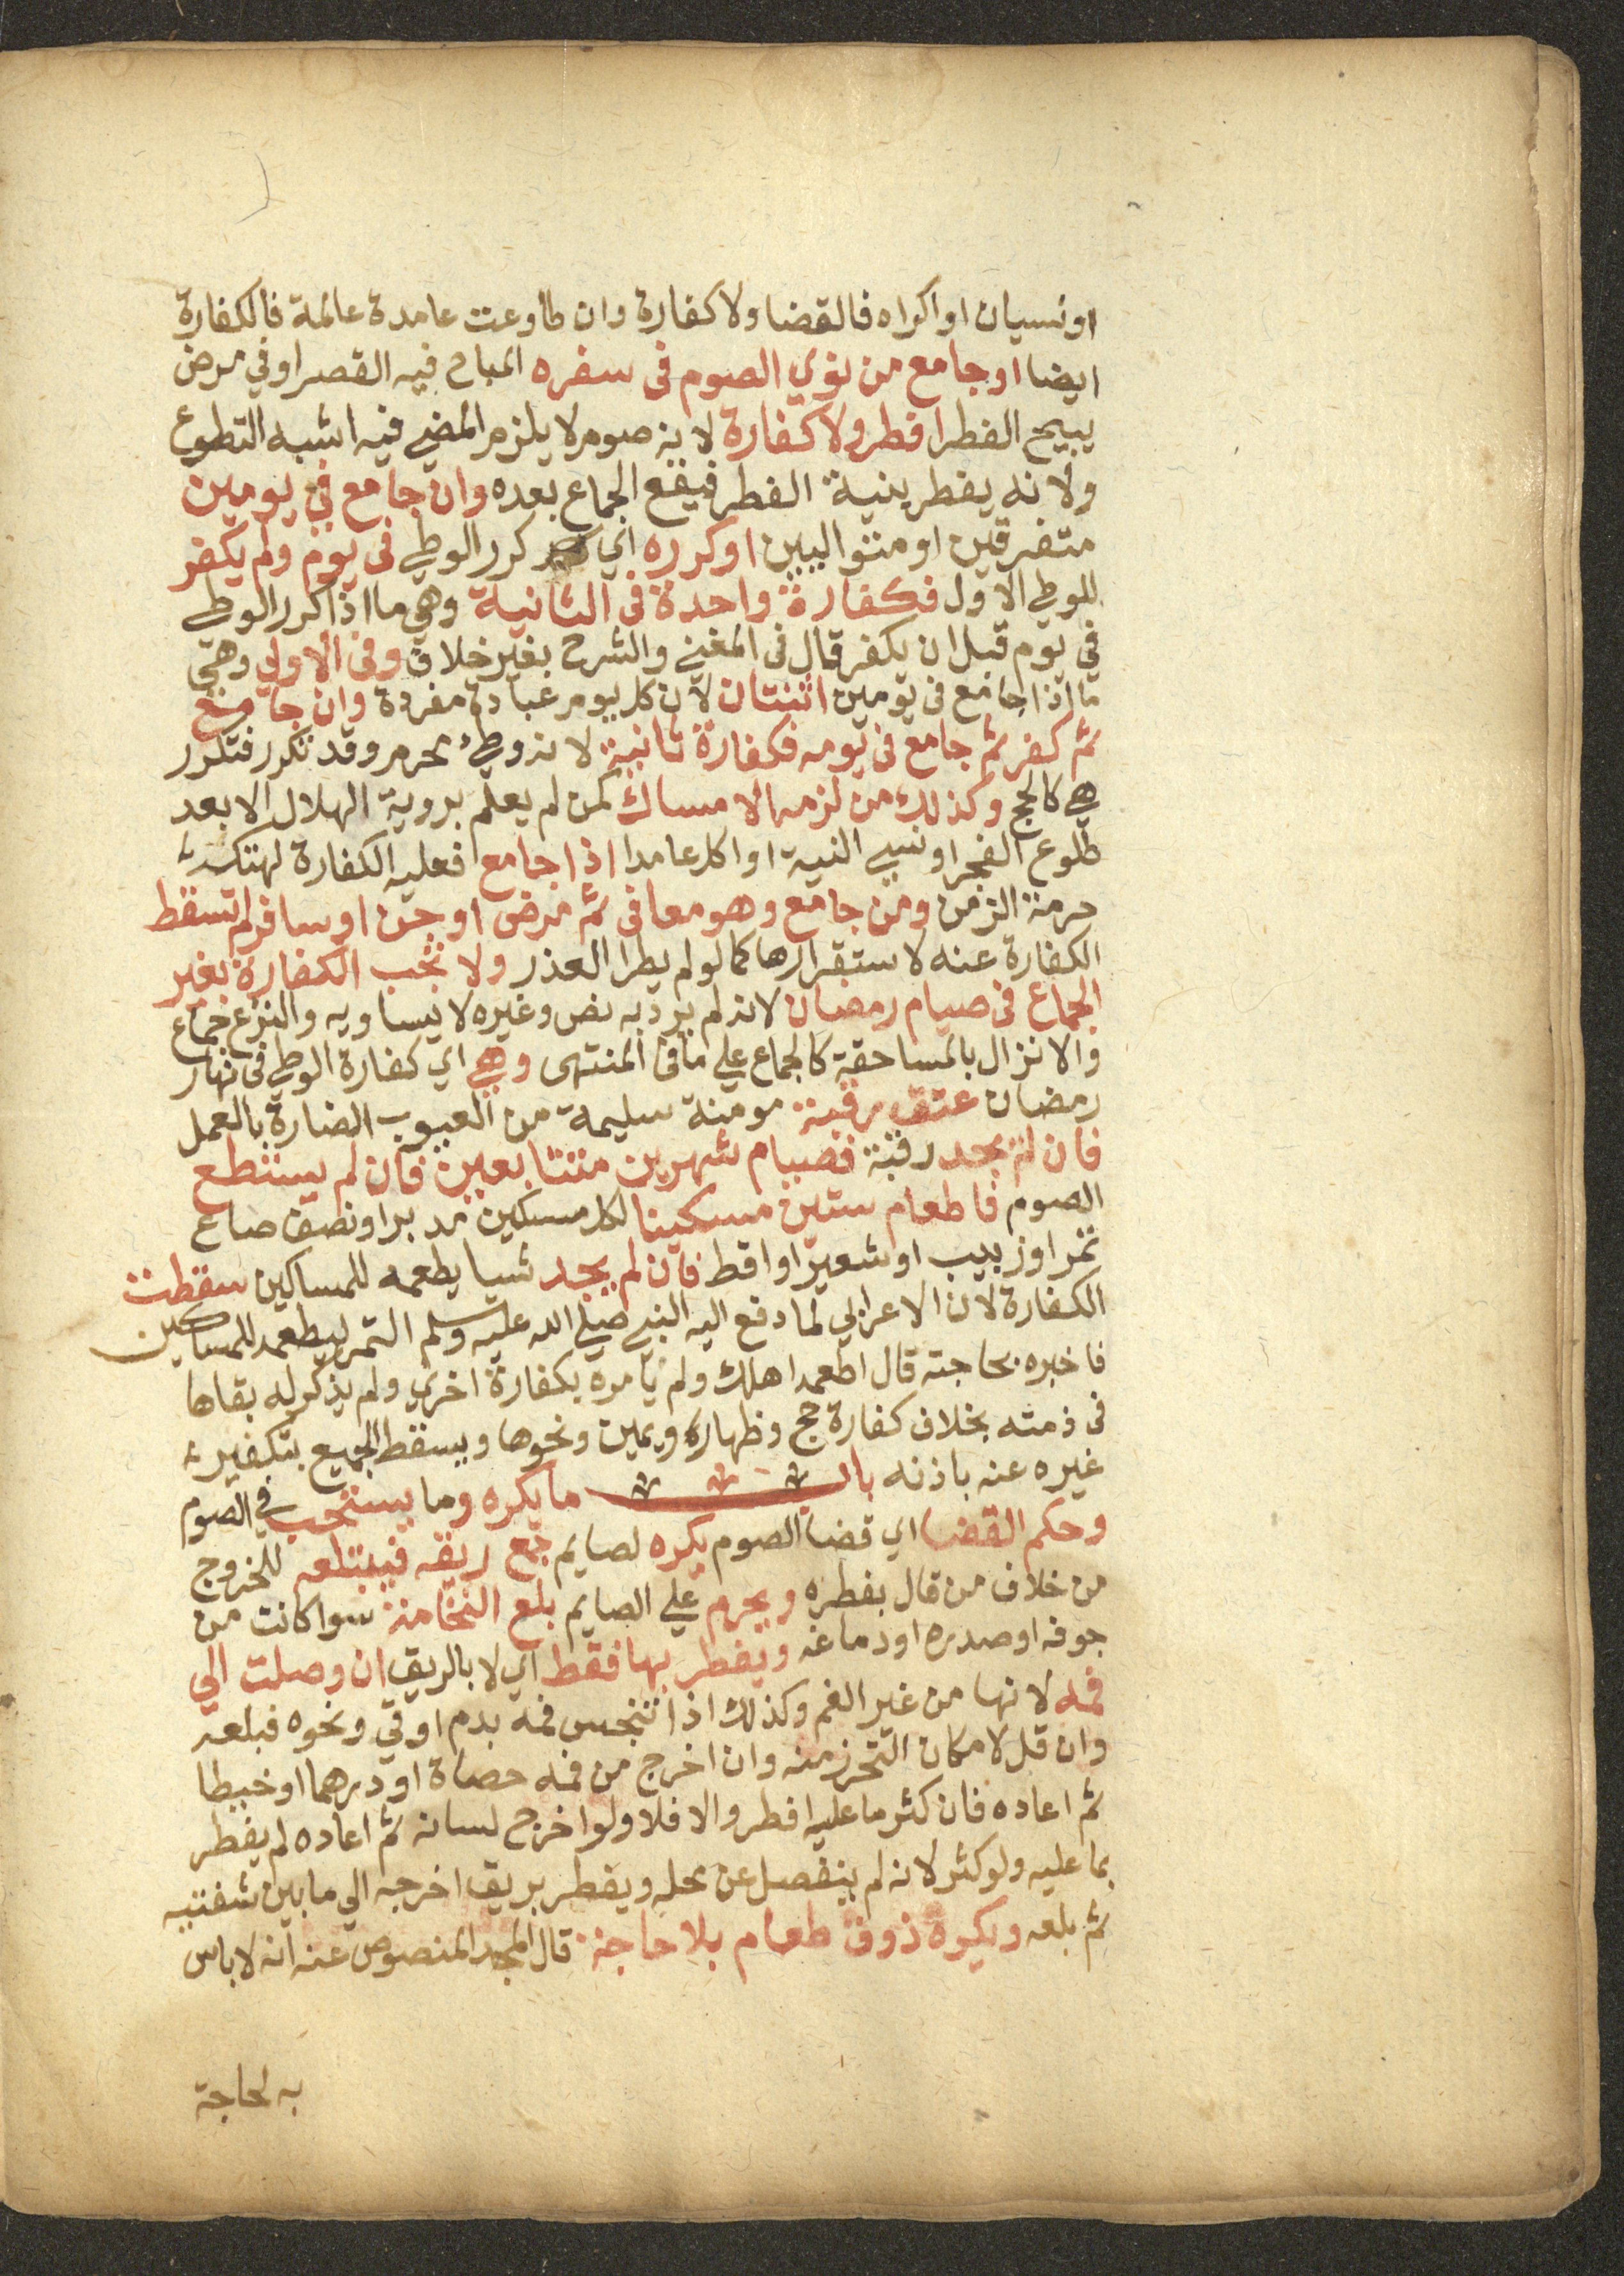 او نسيان او اكراه فالقضا ولا كفارة وان طاوعت عامدة عالمة فالكفارة
ايضا او جامع من نوي الصوم فى سفره المباح فيه القصر او في مرض
يبيح الفطر افطر ولا كفارة لانه صوم لا يلزم المضي فيه اشبه التطوع
ولانه يفطر بنية الفطر فيقع الجماع بعده وان جامع في يومين
متفرقين او متواليين او كرره اي كرر الوطي فى يوم ولم يكفر
للوطي الاول فكفارة واحدة فى الثانية وهي ما اذا كرر الوطي
في يوم قبل ان يكفر قال فى المغني والشرح بغير خلاف وفى الاولي وهي
ما اذا جامع فى يومين اثنتان لان كل يوم عبادة مفردة وان جامع
ثم كفر ثم جامع فى يومه فكفارة ثانية لانه وطي محرم وقد تكرر فتكرر
هي كالحج وكذلك من لزمه الامساك كمن لم يعلم بروية الهلال الا بعد
طلوع الفجر او نسي النية او اكل عامدا اذا جامع فعليه الكفارة لهتكه
حرمة الزمن ومن جامع وهو معافى ثم مرض او جن او سافر لم تسقط
الكفارة عنه لاستقرارها كما لو لم يطرا العذر ولا تجب الكفارة بغير
الجماع فى صيام رمضان لانه لم يرد به نص وغيره لا يساويه والنزع جماع
والانزال بالمساحقة كالجماع علي ما فى المنتهى وهي اي كفارة الوطي فى نهار
رمضان عتق رقبة مومنة سليمة من العيوب الضارة بالعمل
فان لم يجد رقبة فصيام شهرين متتابعين فان لم يستطع
الصوم فاطعام ستين مسكينا لكل مسكين مد بر او نصف صاع
تمر او زبيب او شعير او اقط فان لم يجد شيا يطعمه للمساكين سقطت
الكفارة لان الاعرابي لما دفع اليه النبي صلي الله عليه وسلم التمر ليطعمه للمساكين
فاخبره بحاجته قال اطعمه اهلك ولم يامره بكفارة اخري ولم يذكر له بقاها
فى ذمته بخلاف كفارة حج وظهار ويمين ونحوها ويسقط الجميع بتكفير
غيره عنه باذنه باب ما يكره وما يستحب في الصوم
وحكم القضا اي قضا الصوم يكره لصايم جمع ريقه فيبتلعه للخروج
من خلاف من قال بفطره ويحرم علي الصايم بلع النخامة سوا كانت من
جوفه او صدره او دماغه ويفطر بها فقط اي لا بالريق ان وصلت الي
فمه لانها من غير الفم وكذلك اذا تنجس فمه بدم او قي ونحوه فبلعه
وان قل لامكان التحرز منه وان اخرج من فمه حصاة او درهما او خيطا
ثم اعاده فان كثر ما عليه افطر والا فلا ولو اخرج لسانه ثم اعاده لم يفطر
بما عليه ولو كثر لانه لم ينفصل عن محله ويفطر بريق اخرجه الي ما بين شفتيه
ثم بلعه ويكره ذوق طعام بلا حاجة قال المجد المنصوص عنه انه لا باس
به لحاجة